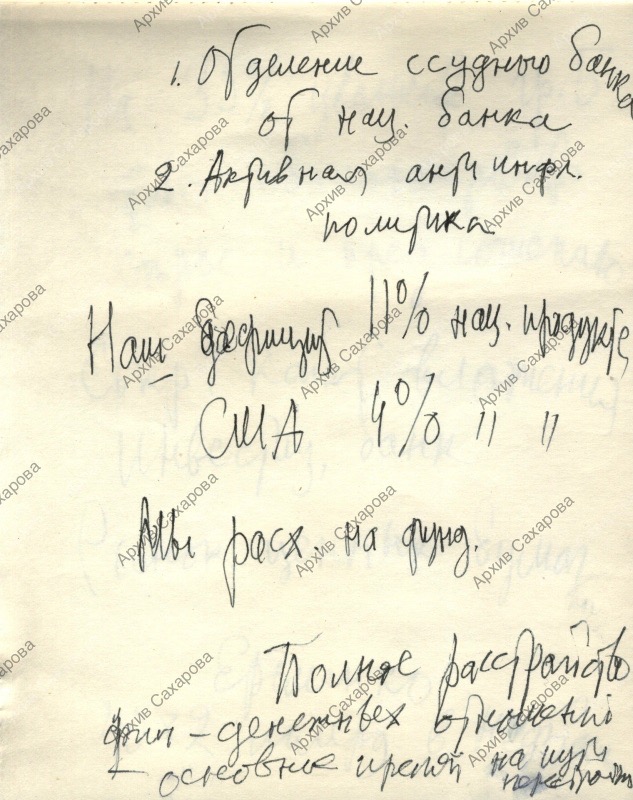 1. Отделение ссудного банка
от нац. банка
2. Активная антиинфл.
политика
Наш дефицит 11% нац. продукта
США 4% " "
Мы расх. на фунд.
Полное расстройство
фин-денежных отношений
– основные на пути
перестройки
Архив Сахарова